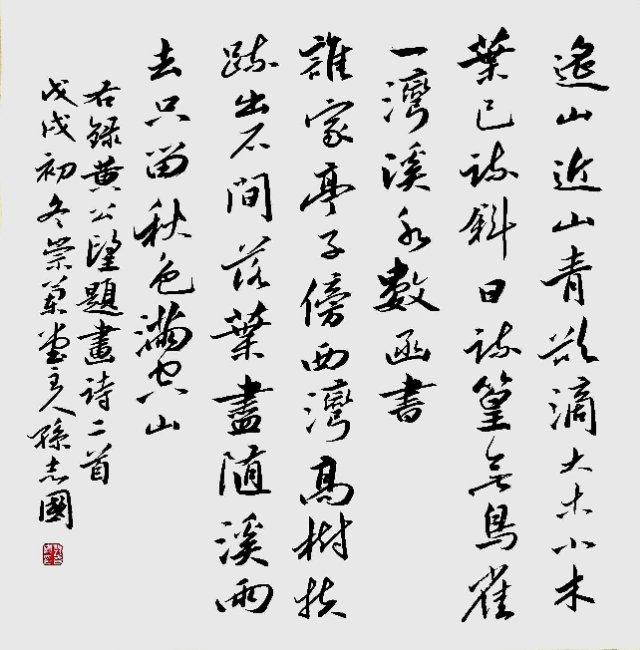 遙山近山青欲滴大木小木
葉已疏斜日疏篁無鳥雀
一灣溪水數函書
誰家亭子傍西灣高樹扶
疏出石間落葉盡隨溪雨
去只留秋色滿空山
右錄黃公望題畫詩二首
戊戌初冬主人孫志國